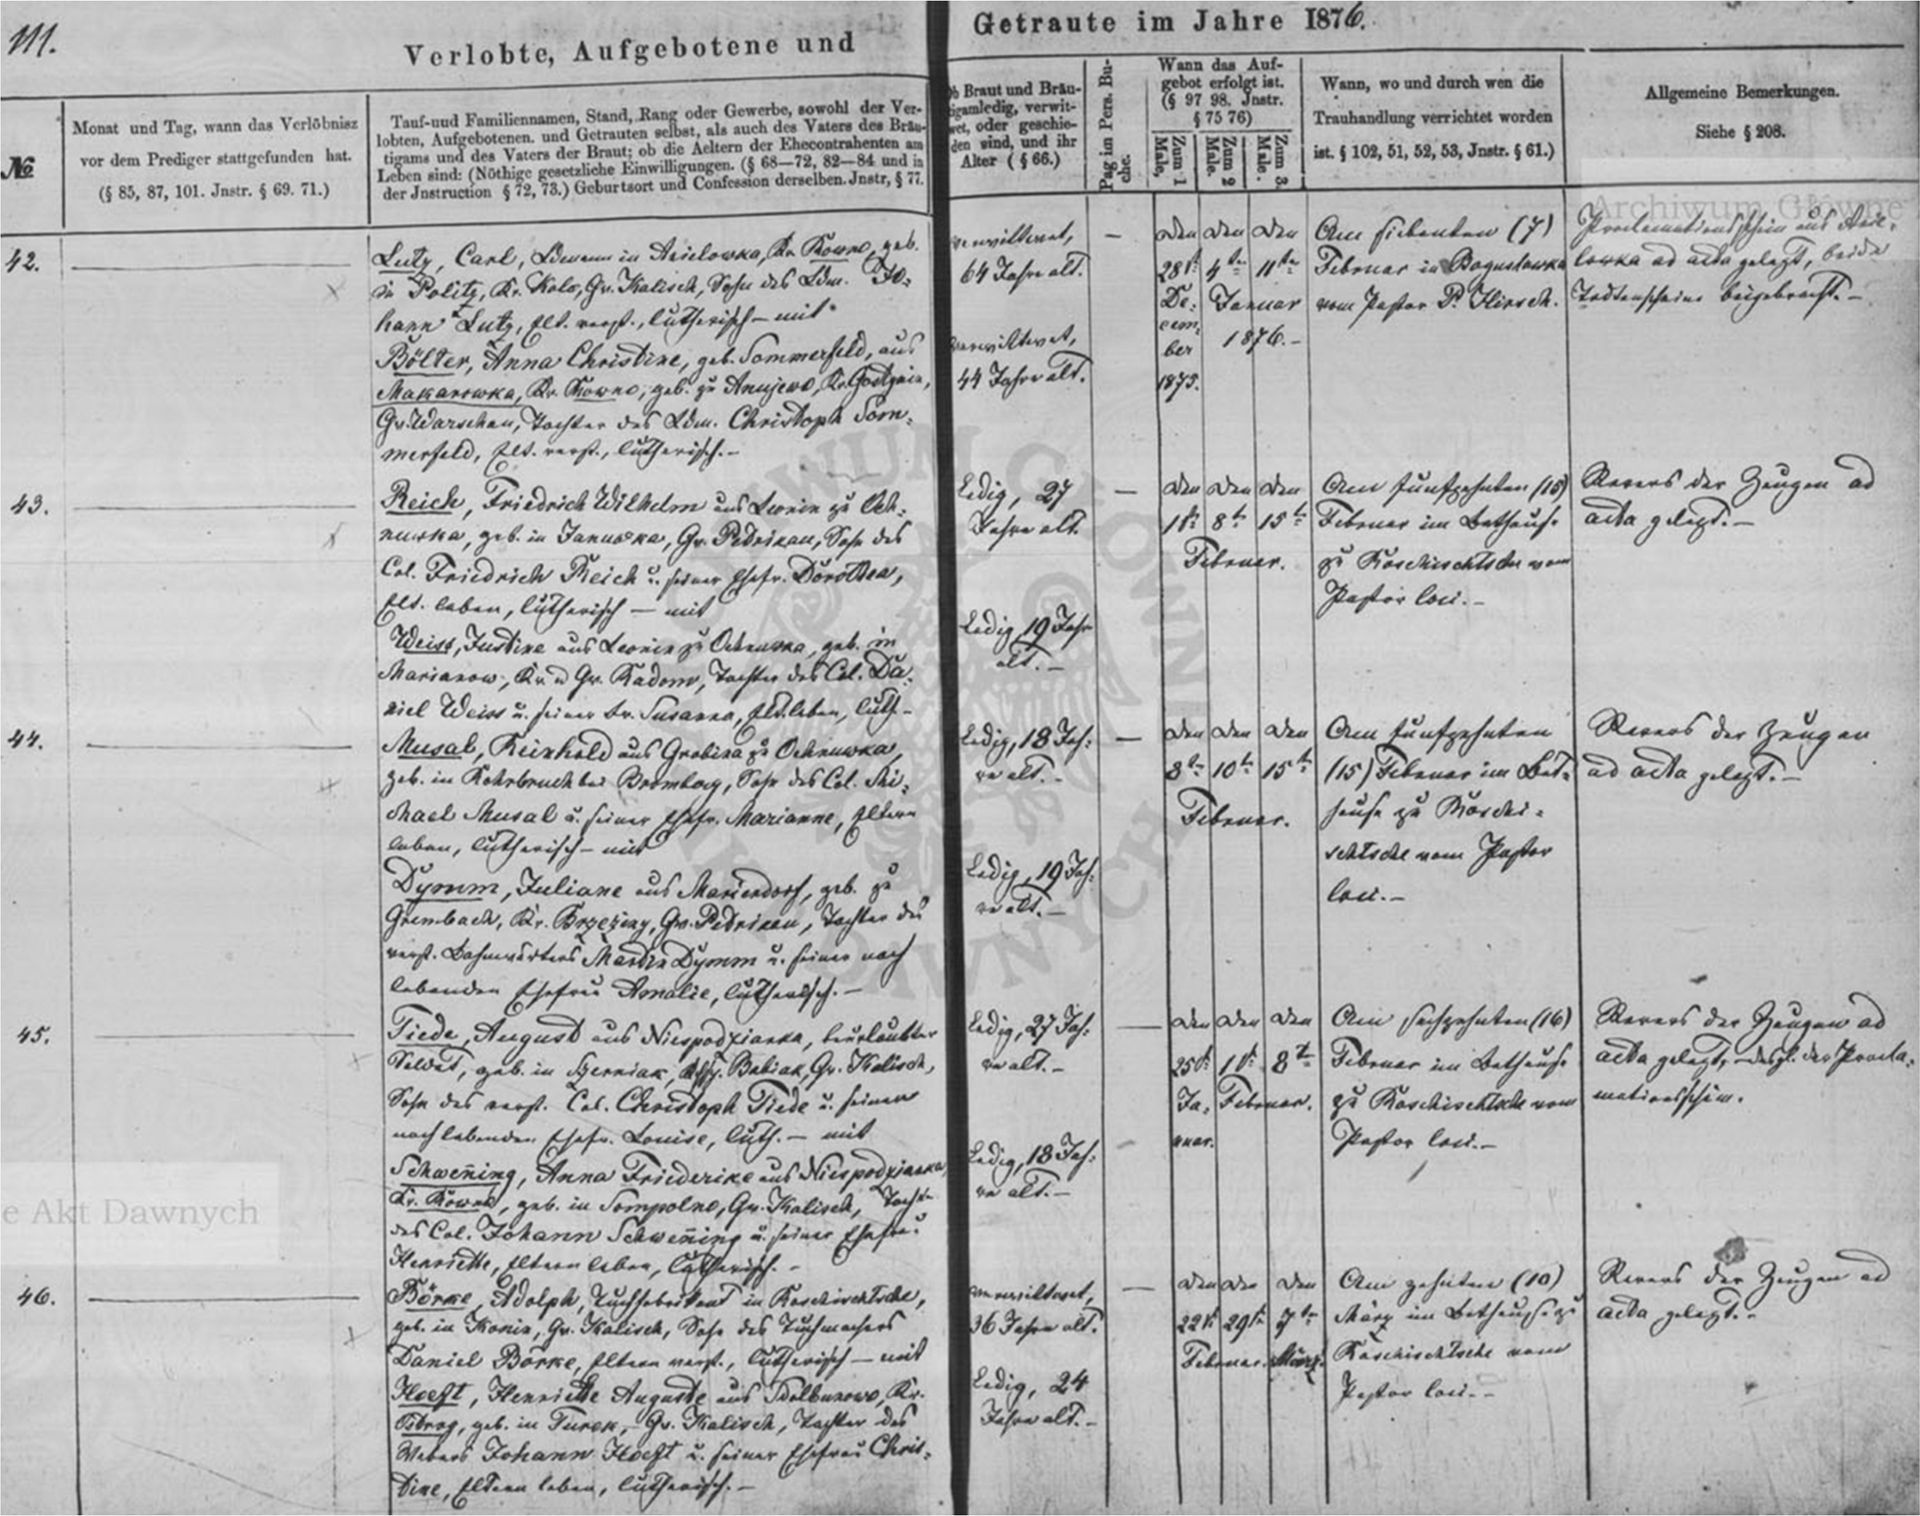 111.
Verlobte, Aufgebotene und
Getraute im Jahre 1876.
№
Monat und Tag, wann das Verlöbnisz
vor dem Prediger stattgefunden hat.
(§ 85, 87, 101. Jnstr. § 69. 71.)
Tauf-uud Familiennamen, Stand, Rang oder Gewerbe, sowohl der Ver-
lobten, Aufgebotenen. und Getrauten selbst, als auch des Vaters des Bräu-
tigams und des Vaters der Braut; ob die Aeltern der Ehecontrahenten am
Leben sind: (Nöthige gesetzliche Einwilligungen. (§ 68—72, 82—84 und in
der Jnstruction § 72, 73.) Geburtsort und Confession derselben. Jnstr, § 77.
b Braut und Bräu-
igamledig, verwit-
wet, oder geschie-
den sind, und ihr
Alter ( § 66.)
Pag im Pers. Bu-
che.
Wann das Auf-
gebot erfolgt ist.
(§ 97 98. Jnstr.
§ 75 76)
Zum 1
Male,
Zum 2
Male.
Zum 3
Male.
Wann, wo und durch wen die
Trauhandlung verrichtet worden
ist. § 102, 51, 52, 53, Jnstr. § 61.)
Allgemeine Bemerkungen.
Siehe § 208.
Archiwum Główne
42.
Lutz, Carl, in Kr. Rowno, geb.
in Politz, Kr. Kolo, Gv. Kalisch, Sohn des Ldm. Jo-
hann Lutz, Elt. verst., lutherisch – mit
Bölter, Anna Christine, geb. Sommerfeld, aus
Makarowka, Kr. Rowno, geb. zu Kr. Gostynin,
Gv. Warschau, Tochter des Ldm. Christoph Som-
merfeld, Elt. verst., lutherisch.–
verwittwet,
64 Jahre alt.
verwittwet,
44 Jahre alt.
—
den den den
28t 4te 11te
De- Januar
cem- 1876.–
ber
1875.
Am siebenten (7)
Februar in Boguslowka
vom Pastor P. Hirsch.
Proclamationsschein aus
ad acta gelegt, beide
Todtenscheine beigebracht.–
43.
Reich, Friedrich Wilhelm aus Leonin zu Och-
nuwka, geb. in Janowka, Gv. Petrikau, Sohn des
Col. Friedrich Reich u. seiner Ehefr. Dorothea,
Elt. leben, lutherisch – mit
Weiss, Justine aus Leonin zu Ochnuwka, geb. in
Marianow, Kr. u Gv. Radom, Tochter des Col. Da-
niel Weiss u. seiner Fr. Susanna, Elt. leben, luth–
Ledig, 27
Jahre alt.
Ledig 19 Jahr
alt.–
—
den den den
1t 8t 15t
Februar.
Am Funfzehnten (15)
Februar im Bethause
zu Roschischtsche vom
Pastor loci.–
Revers der Zeugen ad
acta gelegt.–
44.
Musal, Reinhold aus zu Ochnuwka,
geb. in Rohrbruch bei Bromberg, Sohn des Col. Mi-
chael Musal u. seiner Ehefr. Marianne, Eltern
leben, lutherisch – mit
Dymm, Juliane aus Mariendorf, geb. zu
Grembach, Kr. Brzeziny, Gv. Petrikau, Tochter des
verst. Bahnwärters Martin Dymm u. seiner noch
lebenden Ehefrau Amalie, lutherisch.–
Ledig, 18 Jah-
re alt.–
Ledig, 19 Jah-
re alt.–
—
den den den
8t 10t 15t
Februar.
Am Funfzehnten
(15) Februar im Bet-
hause zu Roschi-
schtsche vom Pastor
loci.–
Revers der Zeugen
ad acta gelegt.–
45.
Tiede, August aus Niespodzianka, beurlaubter
Soldat, geb. in Babiak, Gv. Kalisch,
Sohn des verst. Col. Christoph Tiede u. seiner
noch lebenden Ehefr. Louise, luth. – mit
Schweñing, Anna Friederike aus Niespodzianka
Kr. Rowno, geb. in Sompolno, Gv. Kalisch, Tocht.
des Col. Johann Schweñing u. seiner Ehefrau
Henriette, Eltern leben, lutherisch.–
Ledig, 27 Jah-
re alt.–
Ledig, 18 Jah-
re alt.–
—
den den den
25t 1t 8t
Ja- Februar.
nuar.
Am sechzehnten (16)
Februar im Bethause
zu Roschischtsche vom
Pastor loci.–
Revers der Zeugen ad
acta gelegt, desgl. der Procla-
mationsschein.
46.
Börke, Adolph, Tuchfabrikant in Roschischtsche,
geb. in Konin, Gv. Kalisch, Sohn des Tuchmachers
Daniel Börke, Eltern verst., lutherisch – mit
Hoeft, Henriette Auguste aus Sdolbunowo, Kr.
Ostrog, geb. in Turek, Gv. Kalisch, Tochter des
Webers Johann Hoeft u. seiner Ehefrau Chris-
tine, Eltern leben, lutherisch.–
verwittwet,
36 Jahre alt.
Ledig, 24
Jahre alt.–
—
den den den
22t 29t 7te
Februar. März.
Am zehnten (10)
März im Bethause zu
Roschischtsche vom
Pastor loci.–
Revers der Zeugen ad
acta gelegt.–
e Akt Dawnych